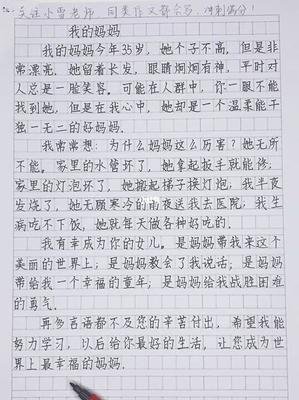 关注小雪老师 同类作文都会写,冲刺满分!
我的妈妈
我的妈妈今年35岁,她个子不高,但是非
常漂亮,她留着长发,眼睛炯炯有神,平时对
人总是一脸笑容。可能在人群中,你一眼不能
找到她,但是在我心中,她却是一个温柔能干
独一无二的好妈妈.
我常常想:为什么妈妈这么厉害?她无所
不能。家里的水管坏了,她拿起扳手就能修;
家里的灯泡坏了,她搬起梯子换灯泡;我半夜
发烧了,她无顾寒冷的雨夜送我去医院;我生
病吃不下饭,她就每天做各种好吃的.
我有幸成为你的女儿。是妈妈带我来这个
美丽的世界上;是妈妈教会了我说话;是妈妈
带给我一个幸福的童年;是妈妈给我战胜困难
的勇气。
再多言语都不及您的辛苦付出,希望我能
努力学习,以后给你最好的生活,让您成为世
界上最幸福的妈妈.